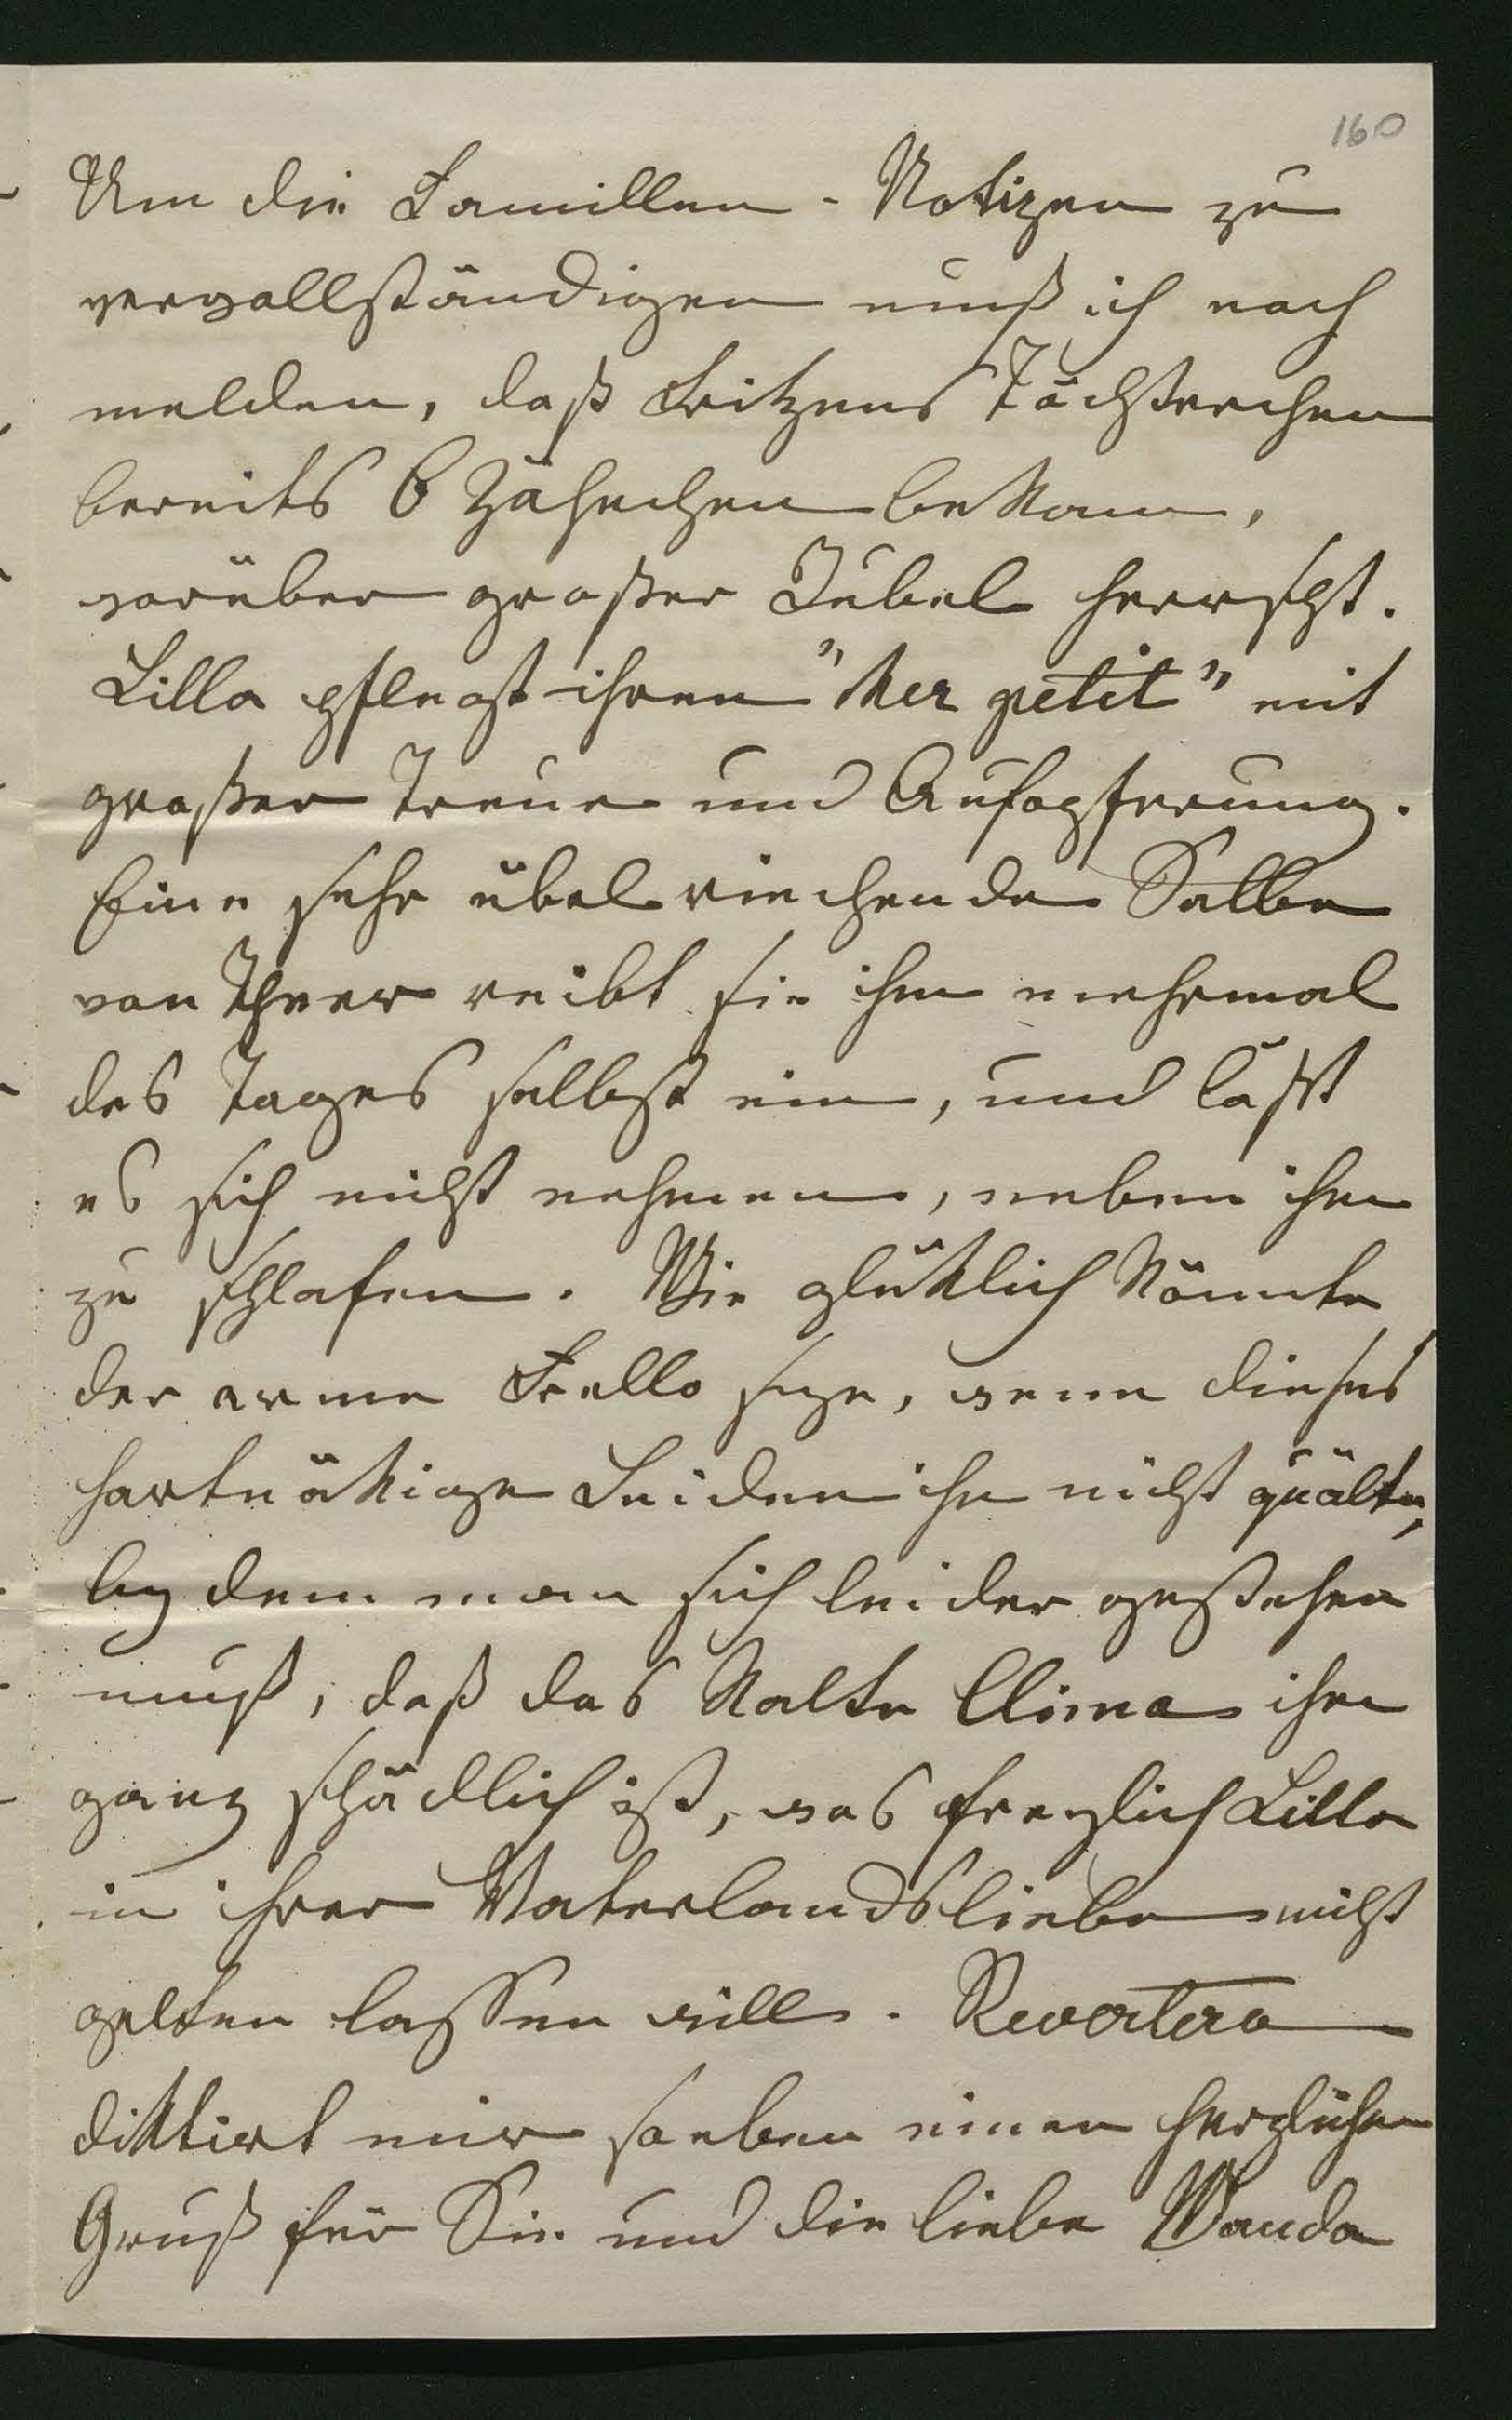 160
Um die Familien-Notizen zu
vervollständigen muß ich noch
melden, daß Fritzens Töchterchen
bereits 6 Zähnchen bekam,
worüber großer Jubel herrscht.
Lilla pflegt ihren "her petit" mit
großer Treue und Aufopferung.
Eine sehr übel riechende Salbe
von Theer reibt sie ihm mehrmal
des Tages selbst ein, und läßt
es sich nicht nehmen, neben ihm
zu schlafen. Wie glüklich könnte
der arme Frello seyn, wenn dieses
hartnäkige Leiden ihn nicht quälte,
bey dem man sich leider gestehen
muß, daß das kalte Clima ihm
ganz schädlich ist, was freylich Lilla
in ihrer Vaterlandsliebe nicht
gelten lassen will. Revertera
diktirt mir soeben einen herzlichen
Gruß für Sie und die liebe Wanda